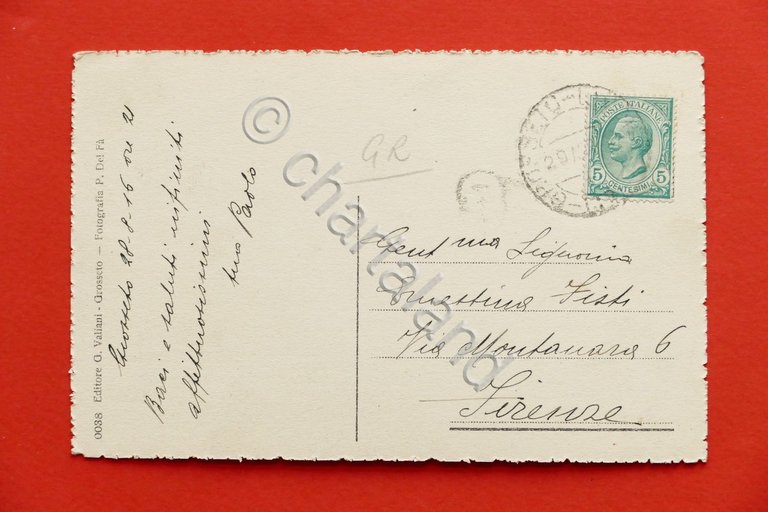 0038 Editore G. Valiani - Grosseto — Fotografia P. Del Fà
Grosseto 28-8-16 ore 21
Baci e saluti infiniti
affettuosissimi
tuo Paolo
GR
POSTE ITALIANE
5 5
CENTESIMI
Gent ma Signorina
Ernestina Fisti
Via Montanara 6
Firenze
© chartaland